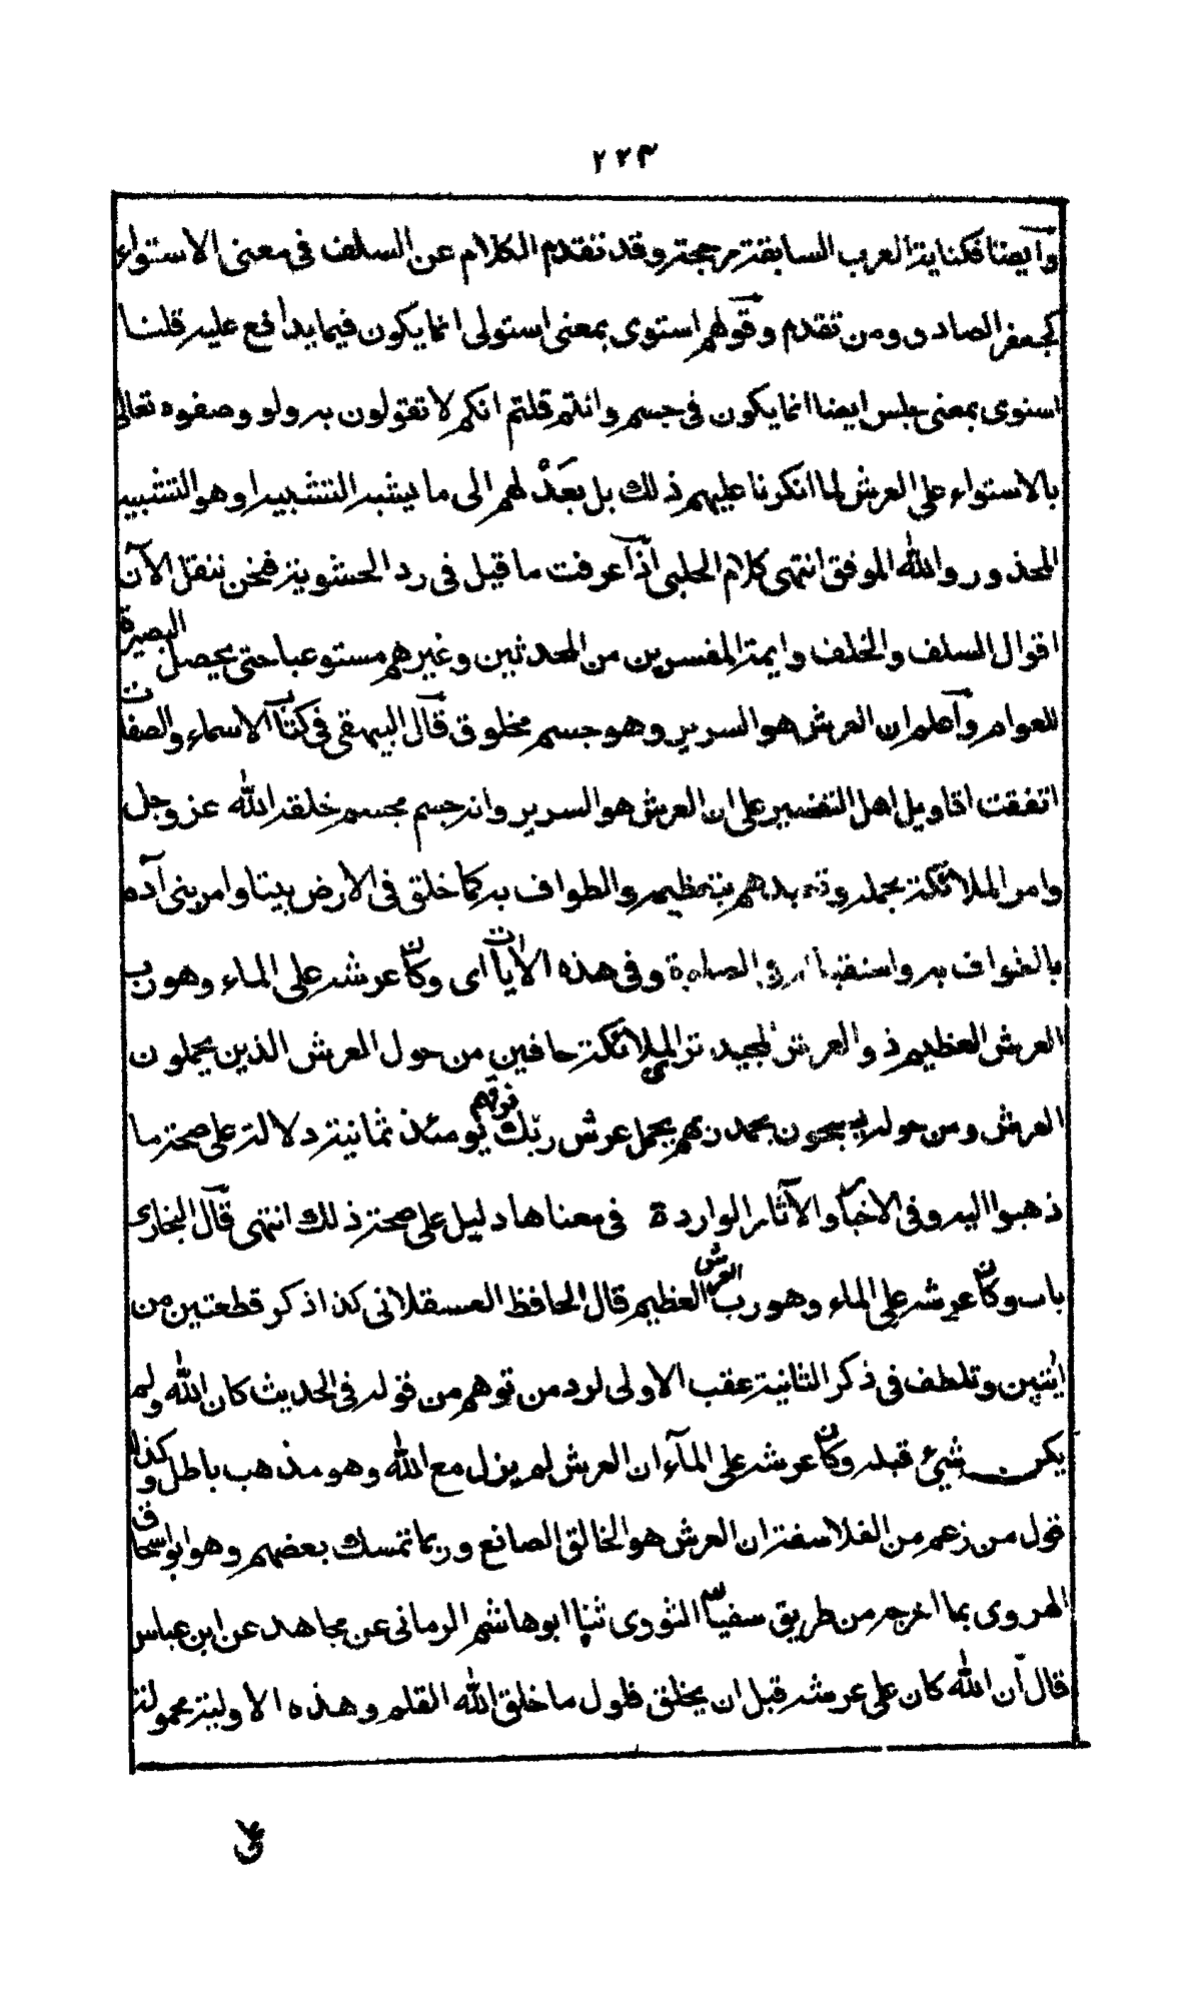 ٢٢٣
وايضا فكناية العرب السابقة مرجحة وقد تقدم الكلام عن السلف فى معنى الاستواء
كجعفر الصادق ومن تقدم وقولهم استوى بمعنى استولى انما يكون فيما يدافع عليه قلنا
استوى بمعنى جلس ايضا انما يكون فى جسم وانتم قلتم انكم لا تقولون به ولو وصفوه تعالى
بالاستواء على العرش لما انكرنا عليهم ذلك بل بعدّ لهم الى ما يشبه التشبيه او هو التشبيه
المحذور والله الموفق انتهى كلام الحلبى اذا عرفت ما قيل فى رد الحشوية فنحن ننقل الآن
اقوال السلف والخلف وايمة المفسرين من المحدثين وغيرهم مستوعبا حتى يحصل البصيرة
للعوام واعلم ان العرش هو السرير وهو جسم مخلوق قال البيهقى فى كتاب الاسماء والصفات
اتفقت اقاويل اهل التفسير على ان العرش هو السرير وانه جسم مجسم خلقه الله عز وجل
وامر الملائكة بحمله وتعبدهم بتعظيمه والطواف به كما خلق فى الارض بيتا وامر بنى آدم
بالطواف به واستقباله فى الصلوة وفى هذه الآيات اى وكان عرشه على الماء وهو رب
العرش العظيم ذو العرش المجيد ترى الملائكة حافين من حول العرش الذين يحملون
العرش ومن حوله يسبحون بحمد ربهم يحمل عرش ربك فوقهم يومئذ ثمانية دلالة على صحة ما
ذهبوا اليه وفى الاخبار والآثار الواردة فى معناها دليل على صحة ذلك انتهى قال البخارى
باب وكان عرشه على الماء وهو رب العرش العظيم قال الحافظ العسقلانى كذا ذكر قطعتين من
ايتين وتلطف فى ذكر الثانية عقب الاولى لرد من توهم من قوله فى الحديث كان الله ولم
يكن شئ قبله وكان عرشه على المآء ان العرش لم يزل مع الله وهو مذهب باطل وكذا
قول من زعم من الفلاسفة ان العرش هو الخالق الصانع وربما تمسك بعضهم وهو ابو اسحاق
الهروى بما اخرجه من طريق سفيان الثورى ثنا ابو هاشم الرمانى عن مجاهد عن ابن عباس
قال ان الله كان على عرشه قبل ان يخلق فاول ما خلق الله القلم وهذه الاولية محمولة